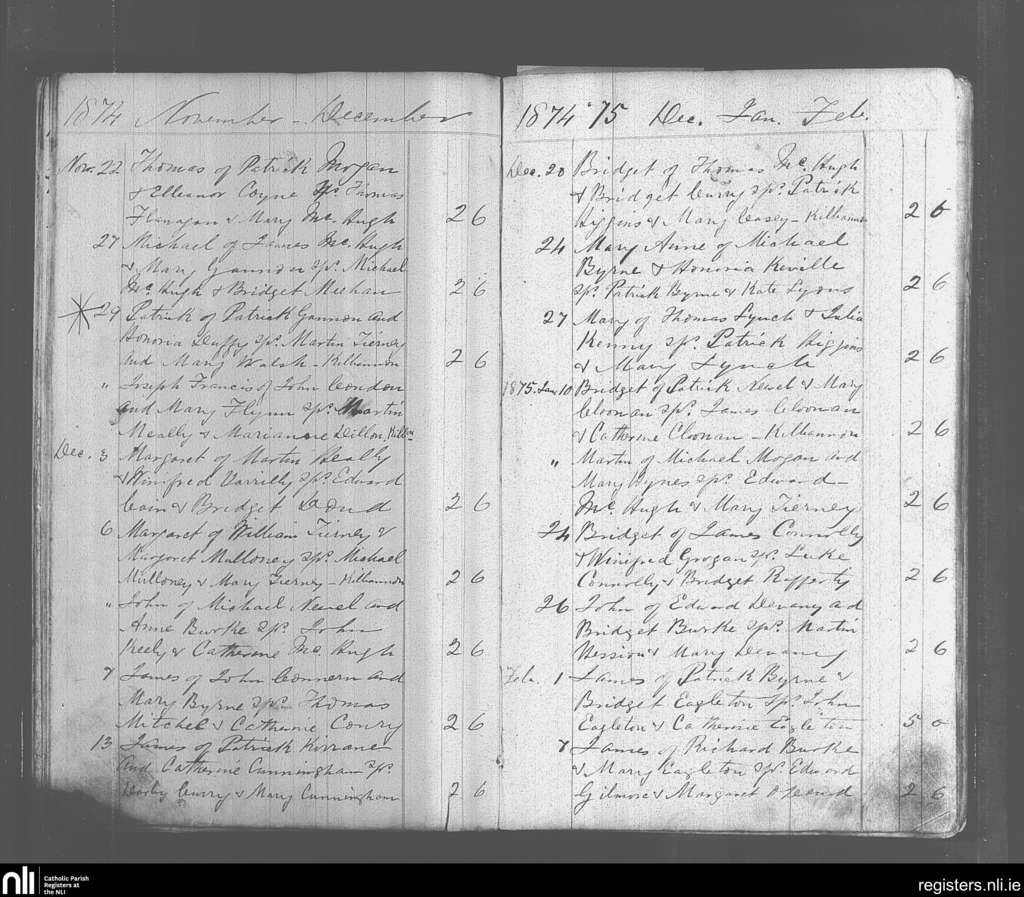 1874 November - December
Nov. 22 Thomas of Patrick Mogan
& Elleanor Coyne Sprs. Thomas
Flanagan & Mary Mc. Hugh 2 6
27 Michael of James Mc. Hugh
& Mary Gannon sprs. Michael
Mc. Hugh & Bridget Meehan 2 6
29 Patrick of Patrick Gannon and
Honoria Duffy sprs. Martin Tierney
and Mary Walsh - Kilbannon 2 6
" Joseph Francis of John Condon
and Mary Flynn sprs. Martin
Meally & Marianne Dillon,
Dec. 3 Margaret of Martin Healy
& Winifred Varrilly sprs. Edward
& Bridget 2 6
6 Margaret of William Tierney &
Margaret Mulloney sprs. Michael
Mulloney & Mary Tierney - Kilbannon 2 6
" John of Michael Newel and
Anne Burke sprs. John
Keely & Catherine Mc Hugh 2 6
7 James of John and
Mary Byrne sprs. Thomas
Mitchel & Catherine Conry 2 6
13 James of Patrick Kirrane
and Catherine Cunningham sprs.
Darby Curry & Mary Cunningham 2 6
1874 '75 Dec. Jan. Feb.
Dec. 20 Bridget of Thomas Mc. Hugh
& Bridget Curry sprs. Patrick
Higgins & Mary Casey - Kilbannon 2 6
24 Mary Anne of Michael
Byrne & Honoria Keville
sprs. Patrick Byrne & Kate Lyons 2 6
27 Mary of Thomas Lynch & Julia
Kenny sprs. Patrick Higgins
& Mary Lynch 2 6
1875. Jan. 10 Bridget of Patrick Newel & Mary
Cloonan sprs. James Cloonan
& Catherine Cloonan - Kilbannon 2 6
" Martin of Michael Mogan and
Mary Hynes sprs. Edward
Mc. Hugh & Mary Tierney 2 6
24 Bridget of James Connolly
& Winifred Grogan sprs. Luke
Connolly & Bridget Rafferty 2 6
26 John of Edward Devaney and
Bridget Burke sprs. Martin
Hession & Mary Devaney 2 6
Feb. 1 James of Patrick Byrne &
Bridget Eagleton sprs. John
Eagleton & Catherine Eagleton 5 0
7 James of Richard Burke
& Mary Eagleton sprs. Edward
Gilmore & Margaret 2 6
nli Catholic Parish
Registers at
the NLI
registers.nli.ie